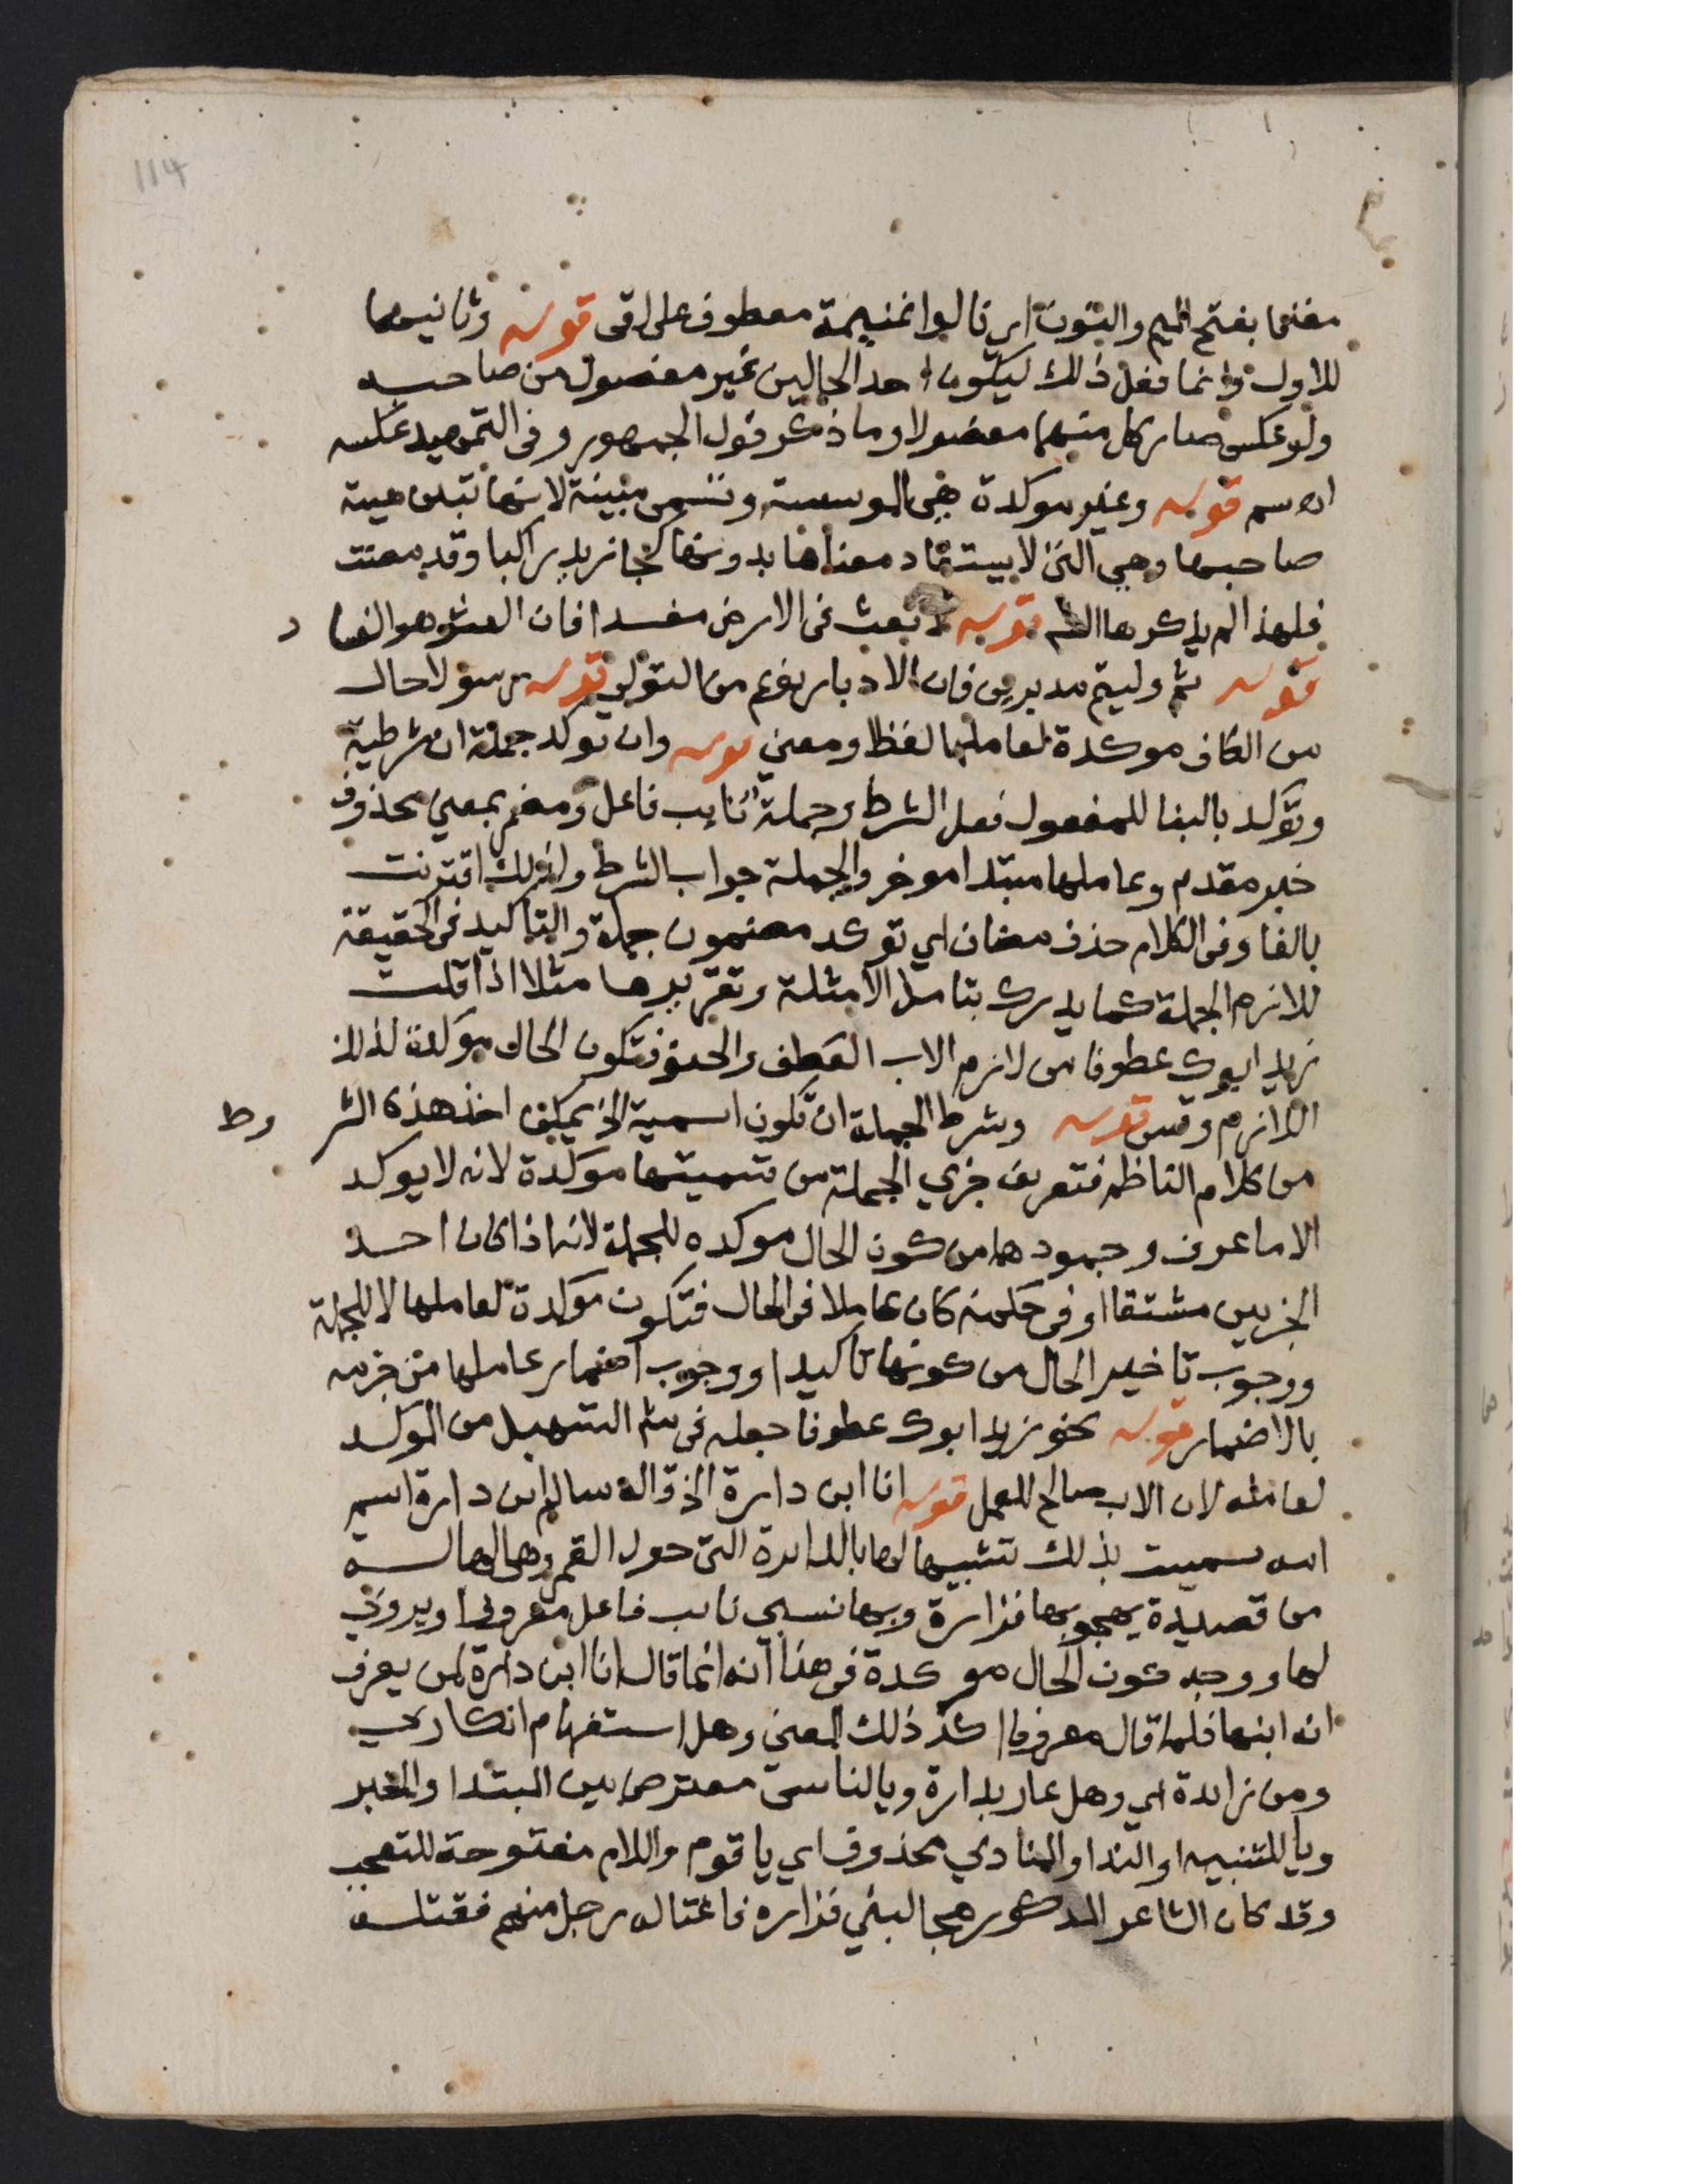 114
مغنما بفتح الميم والنون اي نالوا غنيمة معطوف على لقى قوله وثانيهما
للاول وانما فعل ذلك ليكون احد الحالين غير مفصول من صاحبه
ولو عكس صار كل منهما مفصولا وما ذكر قول الجمهور وفى التمهيد عكسه
قوله وغير موكدة هي الموسسة وتسمى مبينة لانها تبين هيية
صاحبها وهي التى لا يستفاد معناها بدونها كجا زيد راكبا وقد مضت
فلهذا لم يذكرها الشم قوله لا تعث فى الارض مفسدا فان العثو هو الفساد
قوله ثم وليتم مدبرين فان الادبار نوع من التولي قوله رسولا حال
من الكاف موكدة لعاملها لفظا ومعنى قوله وان توكد جملة ان شرطية
وتوكد بالبنا للمفعول فعل الشرط وجملة نايب فاعل ومضمر بمعنى محذوف
خبر مقدم وعاملها مبتدا موخر والجملة جواب الشرط ولذلك اقترنت
بالفا وفى الكلام حذف مضاف اي توكد مضمون جملة والتاكيد فى الحقيقة
للازم الجملة كما يدرك بتامل الامثلة وتقريرها مثلا اذا قلت
زيد ابوك عطوفا من لازم الاب العطف والحنو فتكون الحال موكدة لذلك
اللازم وقس قوله وشرط الجملة ان تكون اسمية الخ يمكن اخذ هذه الشروط
من كلام الناظم فتعريف جزي الجملة من تسميتها موكدة لانه لا يوكد
الا ما عرف وجمودها من كون الحال موكده للجملة لانه اذا كان احد
الجزيين مشتقا او فى حكمه كان عاملا فى الحال فتكون موكدة لعاملها لا للجملة
ووجوب تاخير الحال من كونها تاكيدا ووجوب اضمار عاملها من جزمه
بالاضمار قوله نحو زيد ابوك عطوفا جعله فى شم التسهيل من الموكد
لعامله لان الاب صالح للعمل قوله انا ابن دارة الخ قاله سالم ابن دارة اسم
امه سميت بذلك تشبيها لها بالدايرة التى حول القمر وهى الهالـــه
من قصيدة يهجو بها فزارة وبها نسبي نايب فاعل معروفا ويروى
لها ووجه كون الحال موكدة فى هذا انه انما قال انا ابن دارة لمن يعرف
انه ابنها فلما قال معروفا اكد ذلك المعنى وهل استفهام انكاري
ومن زايدة اي وهل عار بدارة ويا للناس معترض بين المبتدا والخبر
ويا للتنبيه او الندا والمنادي محذوف اي يا قوم واللام مفتوحة للتعجب
وقد كان الشاعر المذكور هجا لبني فزاره فاغتاله رجل منهم فقتله